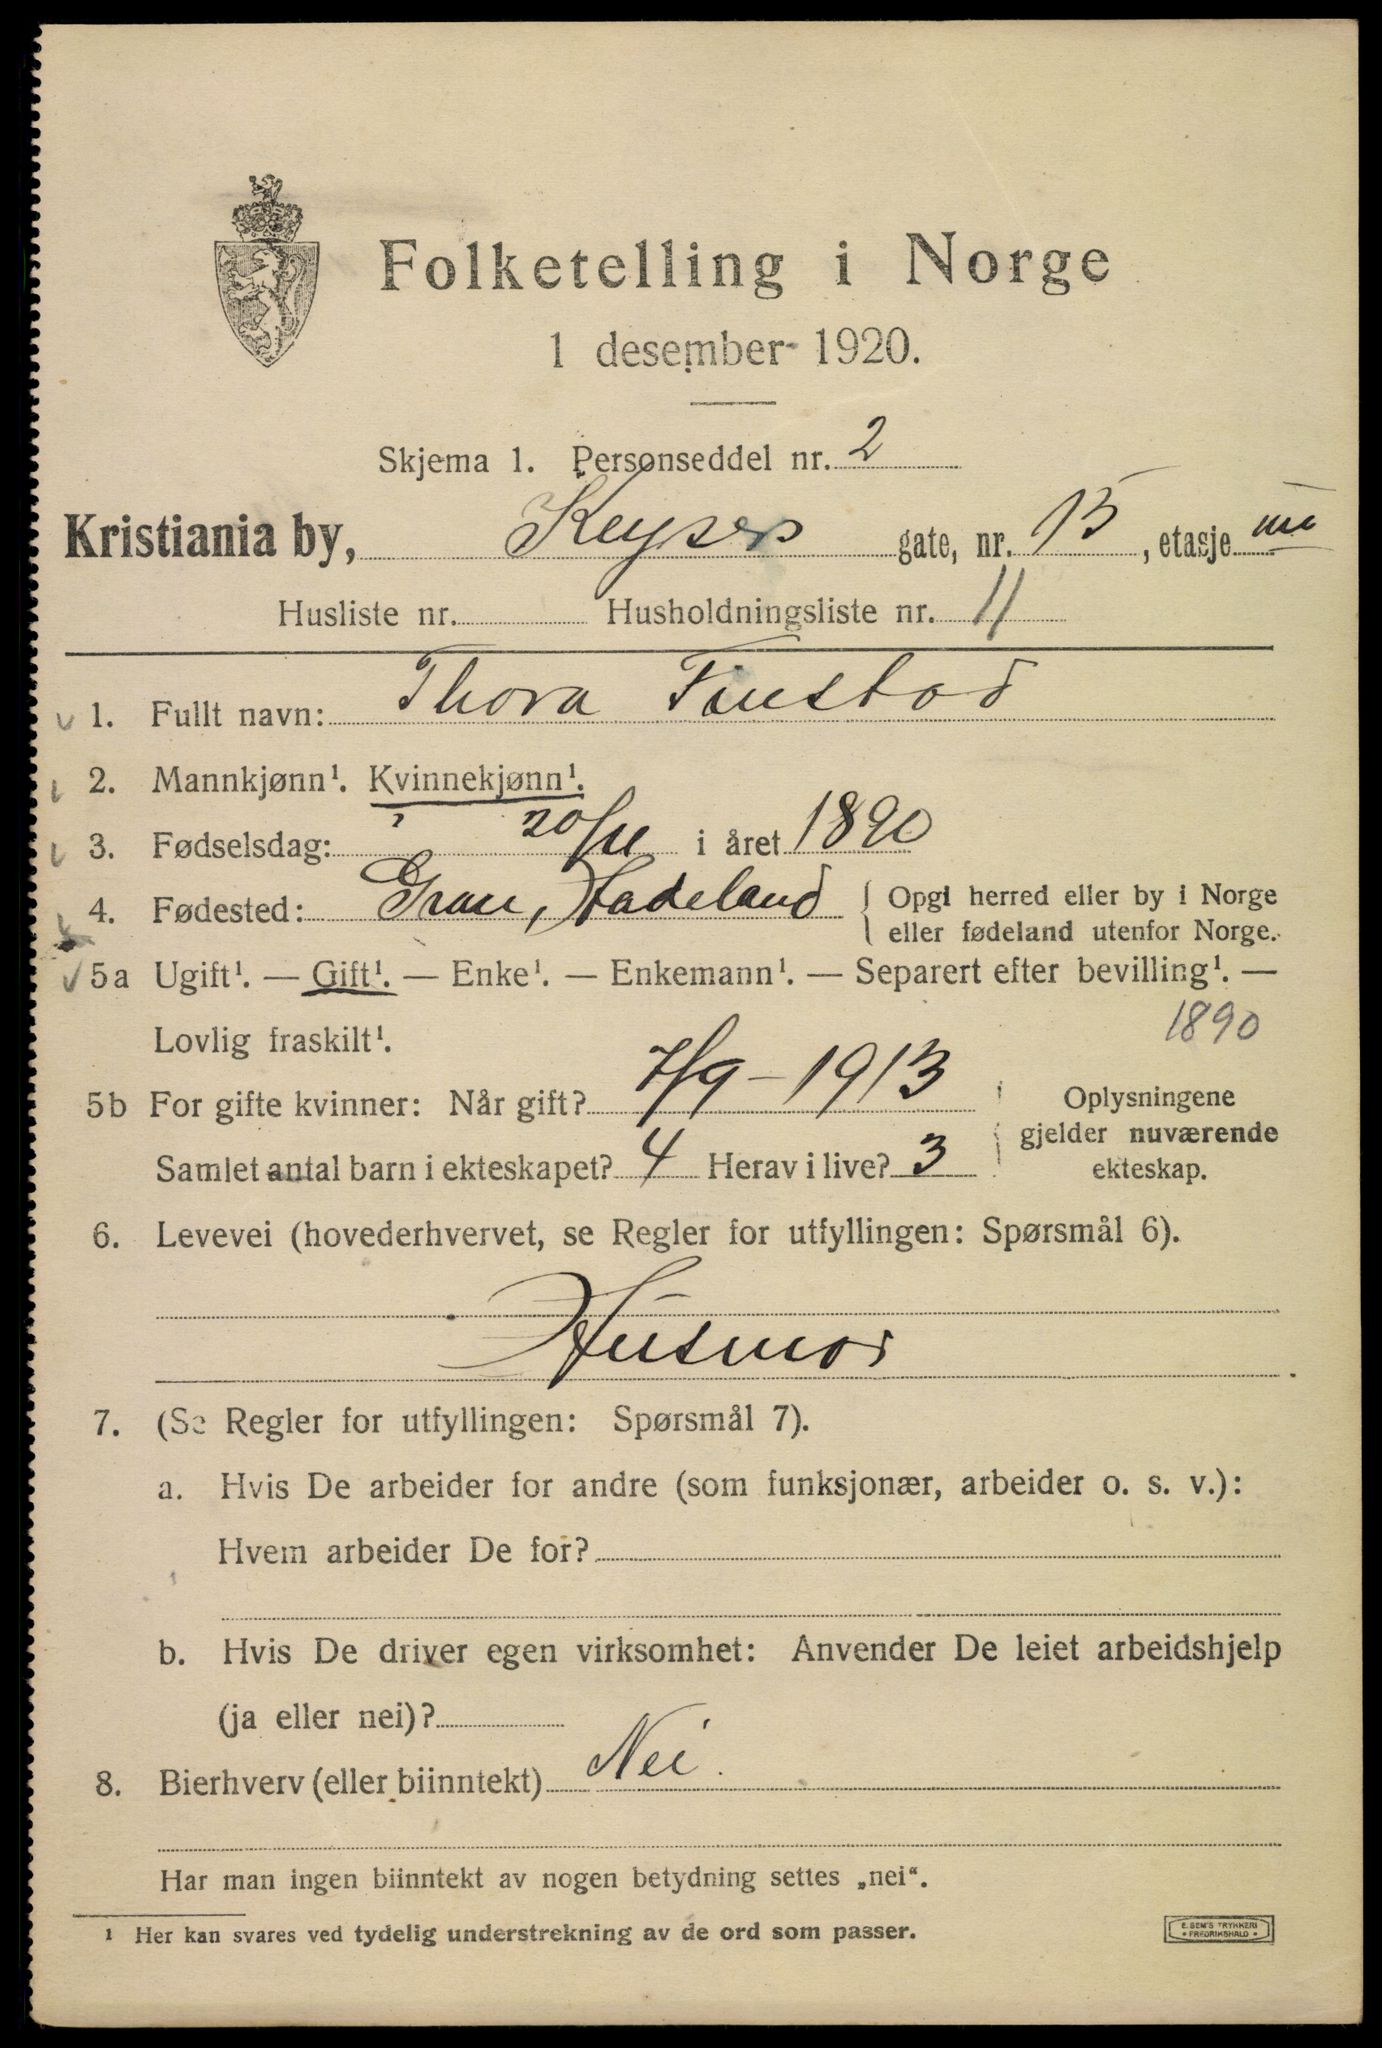 Folketelling i Norge
1 desember 1920.
Skjema 1. Personseddel nr. 2
Kristiania by, Keysers gate, nr. 15, etasje III
Husliste nr. Husholdningsliste nr. 11
1. Fullt navn: Thora Finstad
2. Mannkjønn¹. Kvinnekjønn¹.
3. Fødselsdag: 20/11 i året 1890
4. Fødested: Gran, Hadeland { Opgi herred eller by i Norge
eller fødeland utenfor Norge.
5a Ugift¹. — Gift¹. — Enke¹. — Enkemann¹. — Separert efter bevilling¹. —
Lovlig fraskilt¹. 1890
5b For gifte kvinner: Når gift? 7/9-1913 Oplysningene
gjelder nuværende
Samlet antal barn i ekteskapet? 4 Herav i live? 3 ekteskap.
6. Levevei (hovederhvervet, se Regler for utfyllingen: Spørsmål 6).
Husmor
7. (Se Regler for utfyllingen: Spørsmål 7).
a. Hvis De arbeider for andre (som funksjonær, arbeider o. s. v.):
Hvem arbeider De for?
b. Hvis De driver egen virksomhet: Anvender De leiet arbeidshjelp
(ja eller nei)?
8. Bierhverv (eller biinntekt) Nei.
Har man ingen biinntekt av nogen betydning settes „nei“.
¹ Her kan svares ved tydelig understrekning av de ord som passer.
E. SEM'S TRYKKERI
• FREDRIKSHALD •